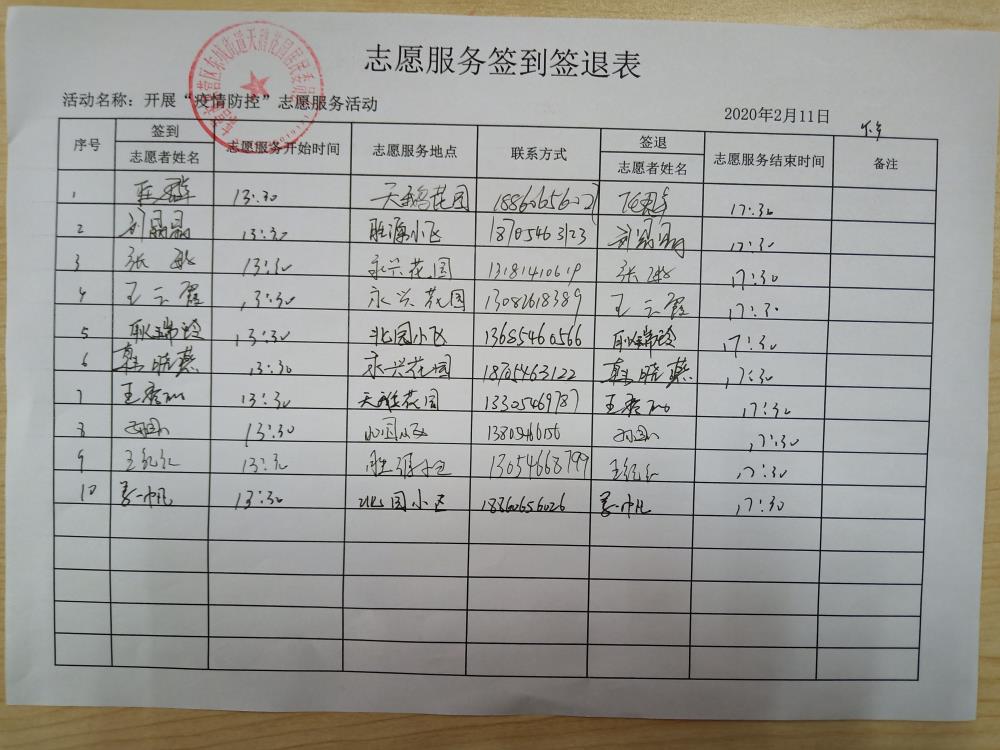 志愿服务签到签退表
活动名称：开展“疫情防控”志愿服务活动
2020年2月11日 下午
序号 签到 志愿者姓名 志愿服务开始时间 志愿服务地点 联系方式 签退 志愿者姓名 志愿服务结束时间 备注
1 13:30 天鹅花园 17:30
2 刘晶晶 13:30 胜源小区 18705463123 刘晶晶 17:30
3 张 13:30 永兴花园 13181410619 张 17:30
4 王云霞 13:30 永兴花园 13082618389 王云霞 17:30
5 耿瑞玲 13:30 北园小区 13685460566 耿瑞玲 17:30
6 韩晓燕 13:30 永兴花园 18705463122 韩晓燕 17:30
7 王 13:30 天鹅花园 13305469787 王 17:30
8 13:30 北园小区 17:30
9 王纪红 13:30 胜源小区 13054668799 王纪红 17:30
10 13:30 北园小区 18860656026 17:30